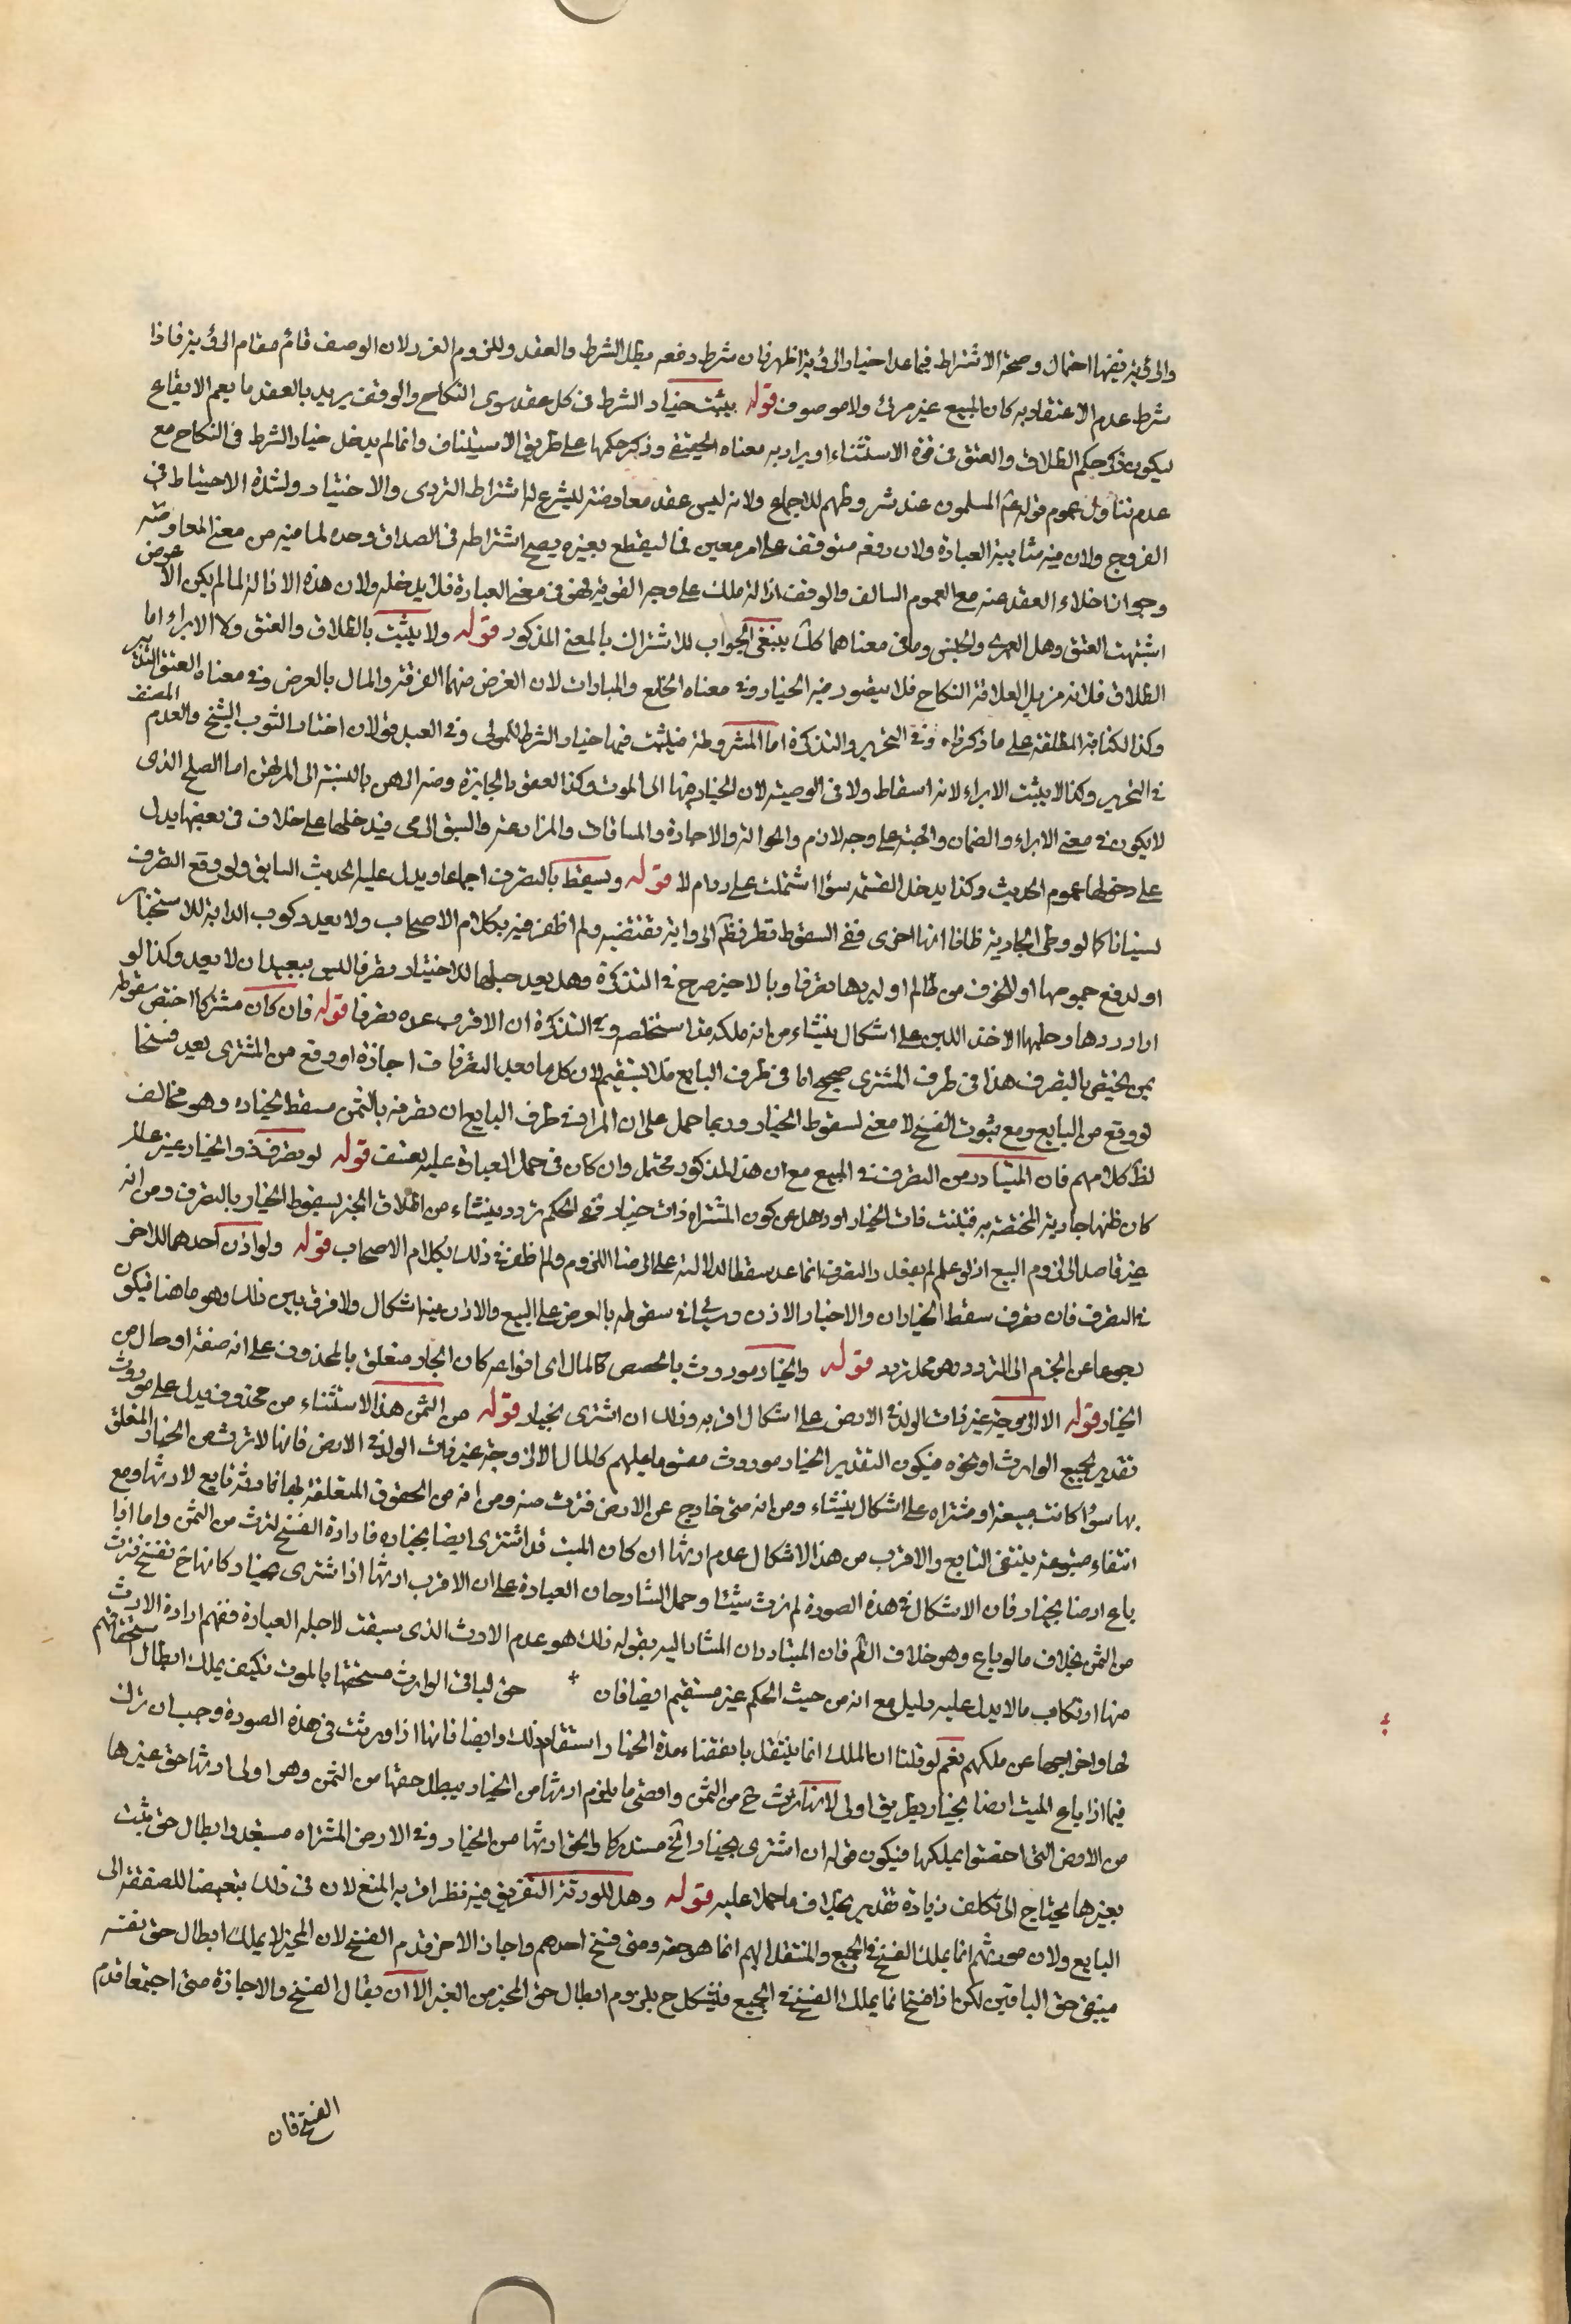 والرؤية ففيها احتمال وصحة الاشتراط فيما عدا خيار الرؤية اظهر فان شرط رفعه بطل الشرط والعقد وللزوم الغرر لان الوصف قائم مقام الرؤية فاذا
شرط عدم الاعتقاد به كان المبيع غير مرئي ولا موصوف قوله يثبت خيار الشرط في كل عقد سوى النكاح والوقف يريد بالعقد ما يعم الايقاع
ليكون ذكر حكم الطلاق والعتق في قوة الاستثناء او يراد به معناه الحقيقي وذكر حكمها على طريق الاستيناف وانما لم يدخل خيار الشرط في النكاح مع
عدم تناول عموم قوله ع المسلمون عند شروطهم للاجماع ولانه ليس عقد معاوضة ليشرع له اشتراط التروي والاختيار ولشدة الاحتياط في
الفروج ولان فيه شائبة العبادة ولان رفعه متوقف على امر معين فلا يقطع بغيره يصح اشتراطه في الصداق وحده لما فيه من معنى المعاوضة
وجواز اخلاء العقد عنه مع العموم السالف والوقف ازالة ملك على وجه القربة فهي في معنى العبادة فلا يدخله ولان هذه الازالة لما لم يكن لا عوض
اشبهت العتق وهل العمرى والحبس وما في معناهما كك ينبغي الجواب للاشتراك بالمعنى المذكور قوله ولا يثبت بالطلاق والعتق ولا الابراء اما
الطلاق فلانه مزيل لعلاقة النكاح فلا يتصور فيه الخيار وفي معناه الخلع والمبارات لان الغرض منهما الفرقة والمال بالعرض وفي معناه العتق التدبير
وكذا الكتابة المطلقة على ما ذكره المصنف في التحرير والتذكرة اما المشروطة فيثبت فيها خيار الشرط للمولى وفي العبد قولان اختار الثبوت الشيخ والعدم
في التحرير وكذا لا يثبت الابراء لانه اسقاط ولا في الوصية لان الخيار فيها الى الموت وكذا العقود الجايزة ومنه الرهن بالنسبة الى المرتهن اما الصلح الذي
لا يكون في معنى الابراء والضمان والهبة على وجه لازم والحوالة والاجارة والمساقات والمزارعة والسبق والرمي فيدخلها على خلاف في بعضها يدل
على دخولها عموم الحديث وكذا يدخل القسمة سواء اشتملت على رد ام لا قوله ويسقط بالتصرف اجماعا ويدل عليه الحديث السابق ولو وقع التصرف
نسيانا كما لو وطى الجارية ظانا انها اخرى ففي السقوط نظر فظ الرواية تقتضيه ولم اظفر فيه بكلام الاصحاب ولا يعد ركوب الدابة للاستخبار
او لدفع جموحها او للخوف من ظالم او ليردها تصرفا وبالاخير صرح في التذكرة وهل يعد حملها للاختيار تصرفا ليس ببعيد ان لا يعد وكذا لو
اراد ردها وحلبها لاخذ اللبن على اشكال ينشاء من انه ملكه فذا استخلصه وفي التذكرة ان الاقرب عده تصرفا قوله فان كان مشتركا اختص سقوطه
بمن يختص بالتصرف هذا في طرف المشتري صحيح اما في طرف البايع فلا يستقيم لان كل ما يعد التصرفات اجازة او وقع من المشتري يعد فسخا
لو وقع من البايع ومع ثبوت الفسخ لا معنى لسقوط الخيار وربما حمل على ان المراد في طرف البايع ان تصرفه بالثمن مسقط لخياره وهو مخالف
لظ كلامهم فان المتبادر من التصرف في المبيع مع ان هذا المذكور محتمل وان كان في حمل العبارة عليه تعسف قوله لو تصرف ذو الخيار غير عالم
كان ظنها جارية المختصة به فتبينت ذات الخيار او ذهل عن كون المشتراه ذات خيار ففي الحكم تردد ينشاء من اطلاق الخبر بسقوط الخيار بالتصرف ومن انه
غير قاصد الى لزوم البيع اذ لو علم لم يفعل والتصرف انما عد مسقطا لدلالته على الرضا اللزوم ولم اظفر في ذلك بكلام الاصحاب قوله ولو اذن احدهما للاخر
في التصرف فان تصرف سقط الخياران والاخيار الاذن وسياتي في سقوطه بالعرض على البيع والاذن فيه اشكال ولا فرق بين ذلك وهو ما هنا فيكون
رجوعا عن الجزم الى التردد وهو محل تردد قوله والخيار موروث بالحصص كالمال اي انواعه كان الجار متعلق بالمحذوف على انه صفة او حال من
الخيار قوله الا الزوجة غير ذات الولد في الارض على اشكال اقربه وذلك ان اشترى بخيار قوله من الثمن هذا الاستثناء من محذوف يدل عليه موروث
تقديره لجميع الوارث او نحوه فيكون التقدير الخيار موروث مقسوما عليهم كالمال الا الزوجة غير ذات الولد في الارض فانها لا ترث من الخيار المتعلق
بها سواء كانت مبيعة او مشتراه على اشكال ينشاء ومن انه متى خارج عن الارض فترث منه ومن انه من الحقوق المتعلقة بها فارثه تابع لارثها ومع
انتفاء متبوعه ينتفي التابع والاقرب من هذا الاشكال عدم ارثها ان كان الميت قد اشترى ارضا بخيار فارادة الفسخ لترث من الثمن واما اذا
باع ارضا بخيار فان الاشكال في هذه الصورة لم ترث شيئا وحمل الشارحان العبارة على ان الاقرب ارثها اذا اشترى بخيار كانها ح تفسخ فترث
من الثمن بخلاف ما لو باع وهو خلاف الظ فان المتبادر ان المشار اليه بقوله ذلك هو عدم الارث الذي سبقت لاجله العبارة ففهم ارادة الارث
منها ارتكاب ما لا يدل عليه دليل مع انه من حيث الحكم غير مستقيم ايضا فان حق لباقي الوارث مستحقها بالموت فكيف يملك ابطال استحقاقهم
لها واخراجها عن ملكهم نعم لو قلنا ان الملك انما ينتقل بانقضاء مدة الخيار استقام ذلك وايضا فانها اذا ورثت في هذه الصورة وجب ان ترث
فيما اذا باع الميت ارضا بخيار بطريق اولى لانها ترث ح من الثمن واقصى ما يلزم ارثها من الخيار يبطل حقها من الثمن وهو اولى ارثها حق غيرها
من الارض التي اختصوا بملكها فيكون قوله ان اشترى بخيار الخ مستدركا والحق ارثها من الخيار وفي الارض المشتراه مستبعد وابطال حق يثبت
بغيرها يحتاج الى تكلف زيادة تقدير بخلاف ما حملا عليه قوله وهل للورثة التفريق فيه نظر اقربه المنع لان في ذلك تبعيضا للصفقة الى
البايع ولان مورثهم انما يملك الفسخ في الجميع والمنتقل اليهم انما هو حقه ومتى فسخ احدهم واجاز الاخر قدم الفسخ لان المجيز لا يملك ابطال حق نفسه
فيبقى حق الباقين لكن اذا فسخ انما يملك الفسخ في الجميع فيشكل ح بلزوم ابطال حق المجيز من الغير الا ان يقال الفسخ والاجازة متى اجتمعا قدم
الفسخ فان